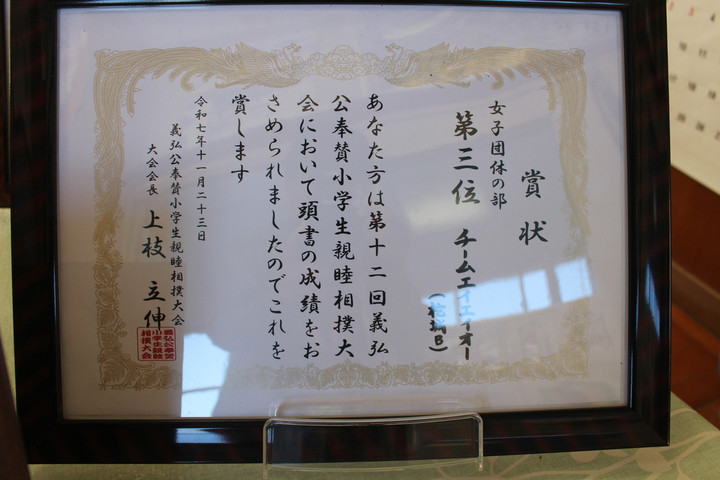 賞状
女子団体の部
第三位 チームエイエイオー
あなた方は第十二回義弘
公奉賛小学生親睦相撲大
会において頭書の成績をお
さめられましたのでこれを
賞します
令和七年十一月二十三日
義弘公奉賛小学生親睦相撲大会
大会会長 上枝 立伸
義弘公奉賛
小学生親睦
相撲大会